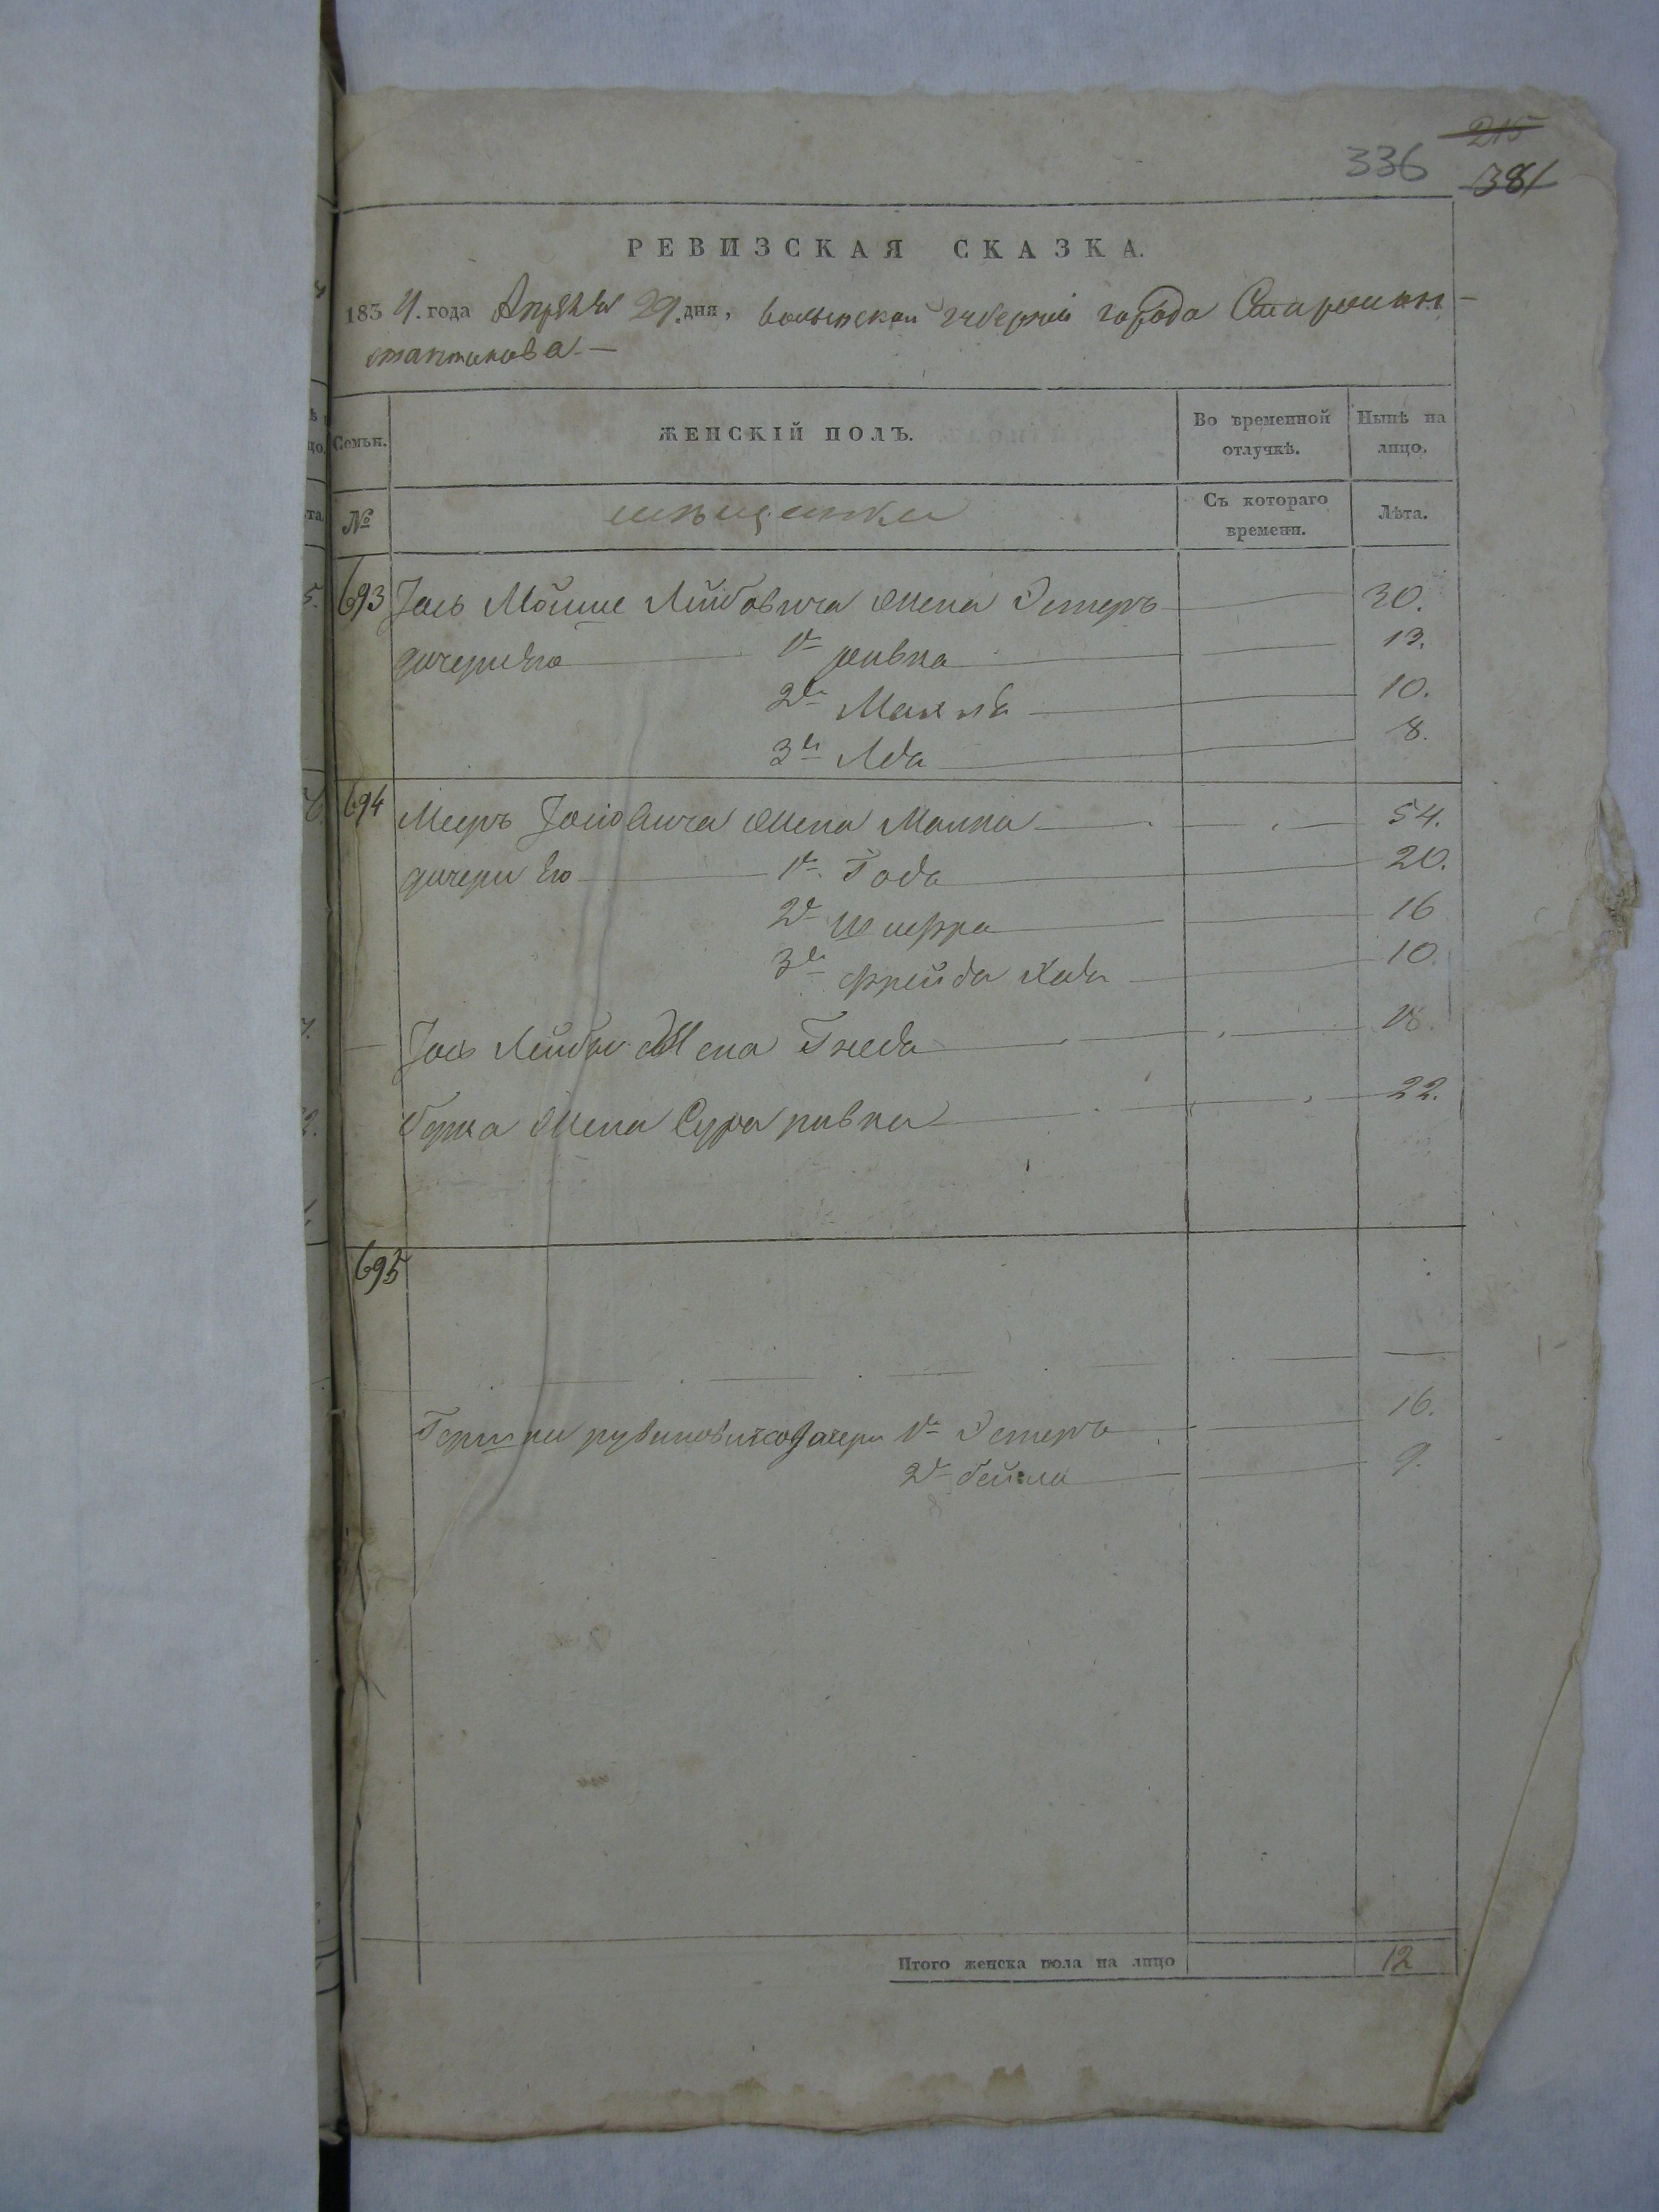 215
336 381
РЕВИЗСКАЯ СКАЗКА.
1834. года Апрѣля 29. дня, Волынской губернiи города Старокон-
стантинова.—
Семьи. ЖЕНСКIЙ ПОЛЪ. Во временной отлучкѣ. Нынѣ на лицо.
№ мѣщанки Съ котораго времени. Лѣта.
693 Iось Мошие Лейбовича жена Эстеръ 30.
дочери его 1я ривка 13.
2я Малка 10.
3я Лея 8.
694 Мееръ Iосiовича жена Малка 54.
дочери его 1я Года 20.
2я Шифра 16
3я фрейда Хая 10.
Iось Лейбы жена Гнеда 18.
берка жена Сура ривка 22.
695
Гершки рувиновича дочери 1я Эстеръ 16.
2я бейла 9.
Итого женска пола на лицо 12